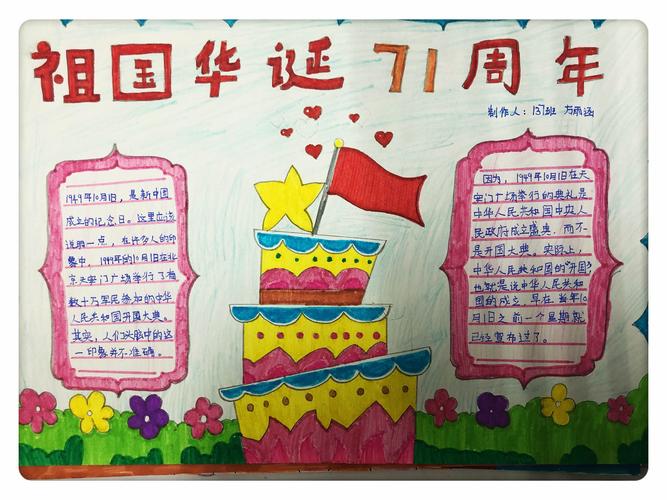 祖国华诞71周年
制作人：137班 方雨涵
1949年10月1日，是新中国
成立的纪念日。这里应该
说明一点，在许多人的印
象中，1949年的10月1日在北
京天安门广场举行了有
数十万军民参加的中华
人民共和国开国大典。
其实，人们头脑中的这
一印象并不准确。
因为，1949年10月1日在天
安门广场举行的典礼是
中华人民共和国中央人
民政府成立盛典，而不
是开国大典。实际上，
中华人民共和国的"开国"
也就是说中华人民共和
国的成立，早在当年10
月1日之前一个星期就
已经宣布过了。